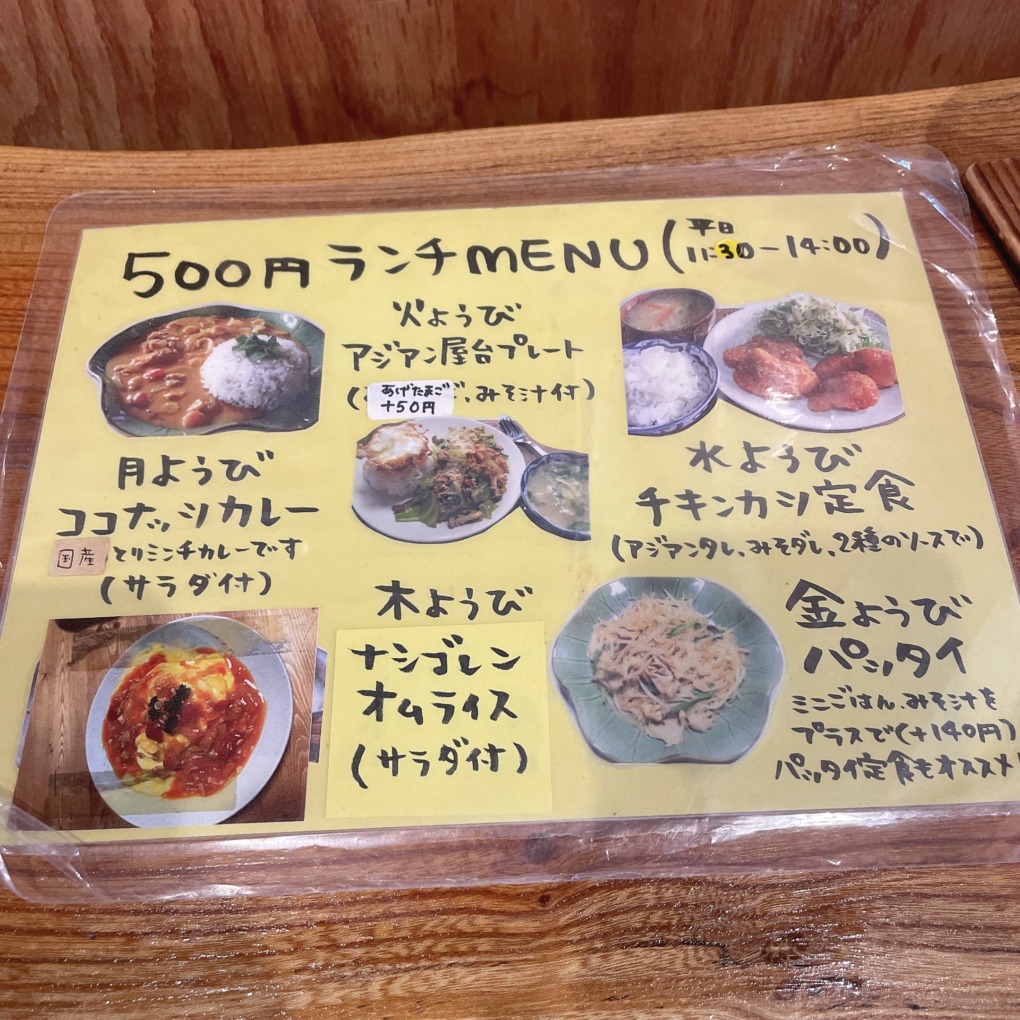 500円 ランチMENU (平日 11:30-14:00)
月ようび
ココナッツカレー
国産 とりミンチカレーです
(サラダ付)
火ようび
アジアン屋台プレート
(みそ汁付)
あげたまご
+50円
水ようび
チキンカツ定食
(アジアンタレ、みそダレ、2種のソースで)
木ようび
ナシゴレン
オムライス
(サラダ付)
金ようび
パッタイ
ミニごはん、みそ汁を
プラスで(+140円)
パッタイ定食もオススメ!